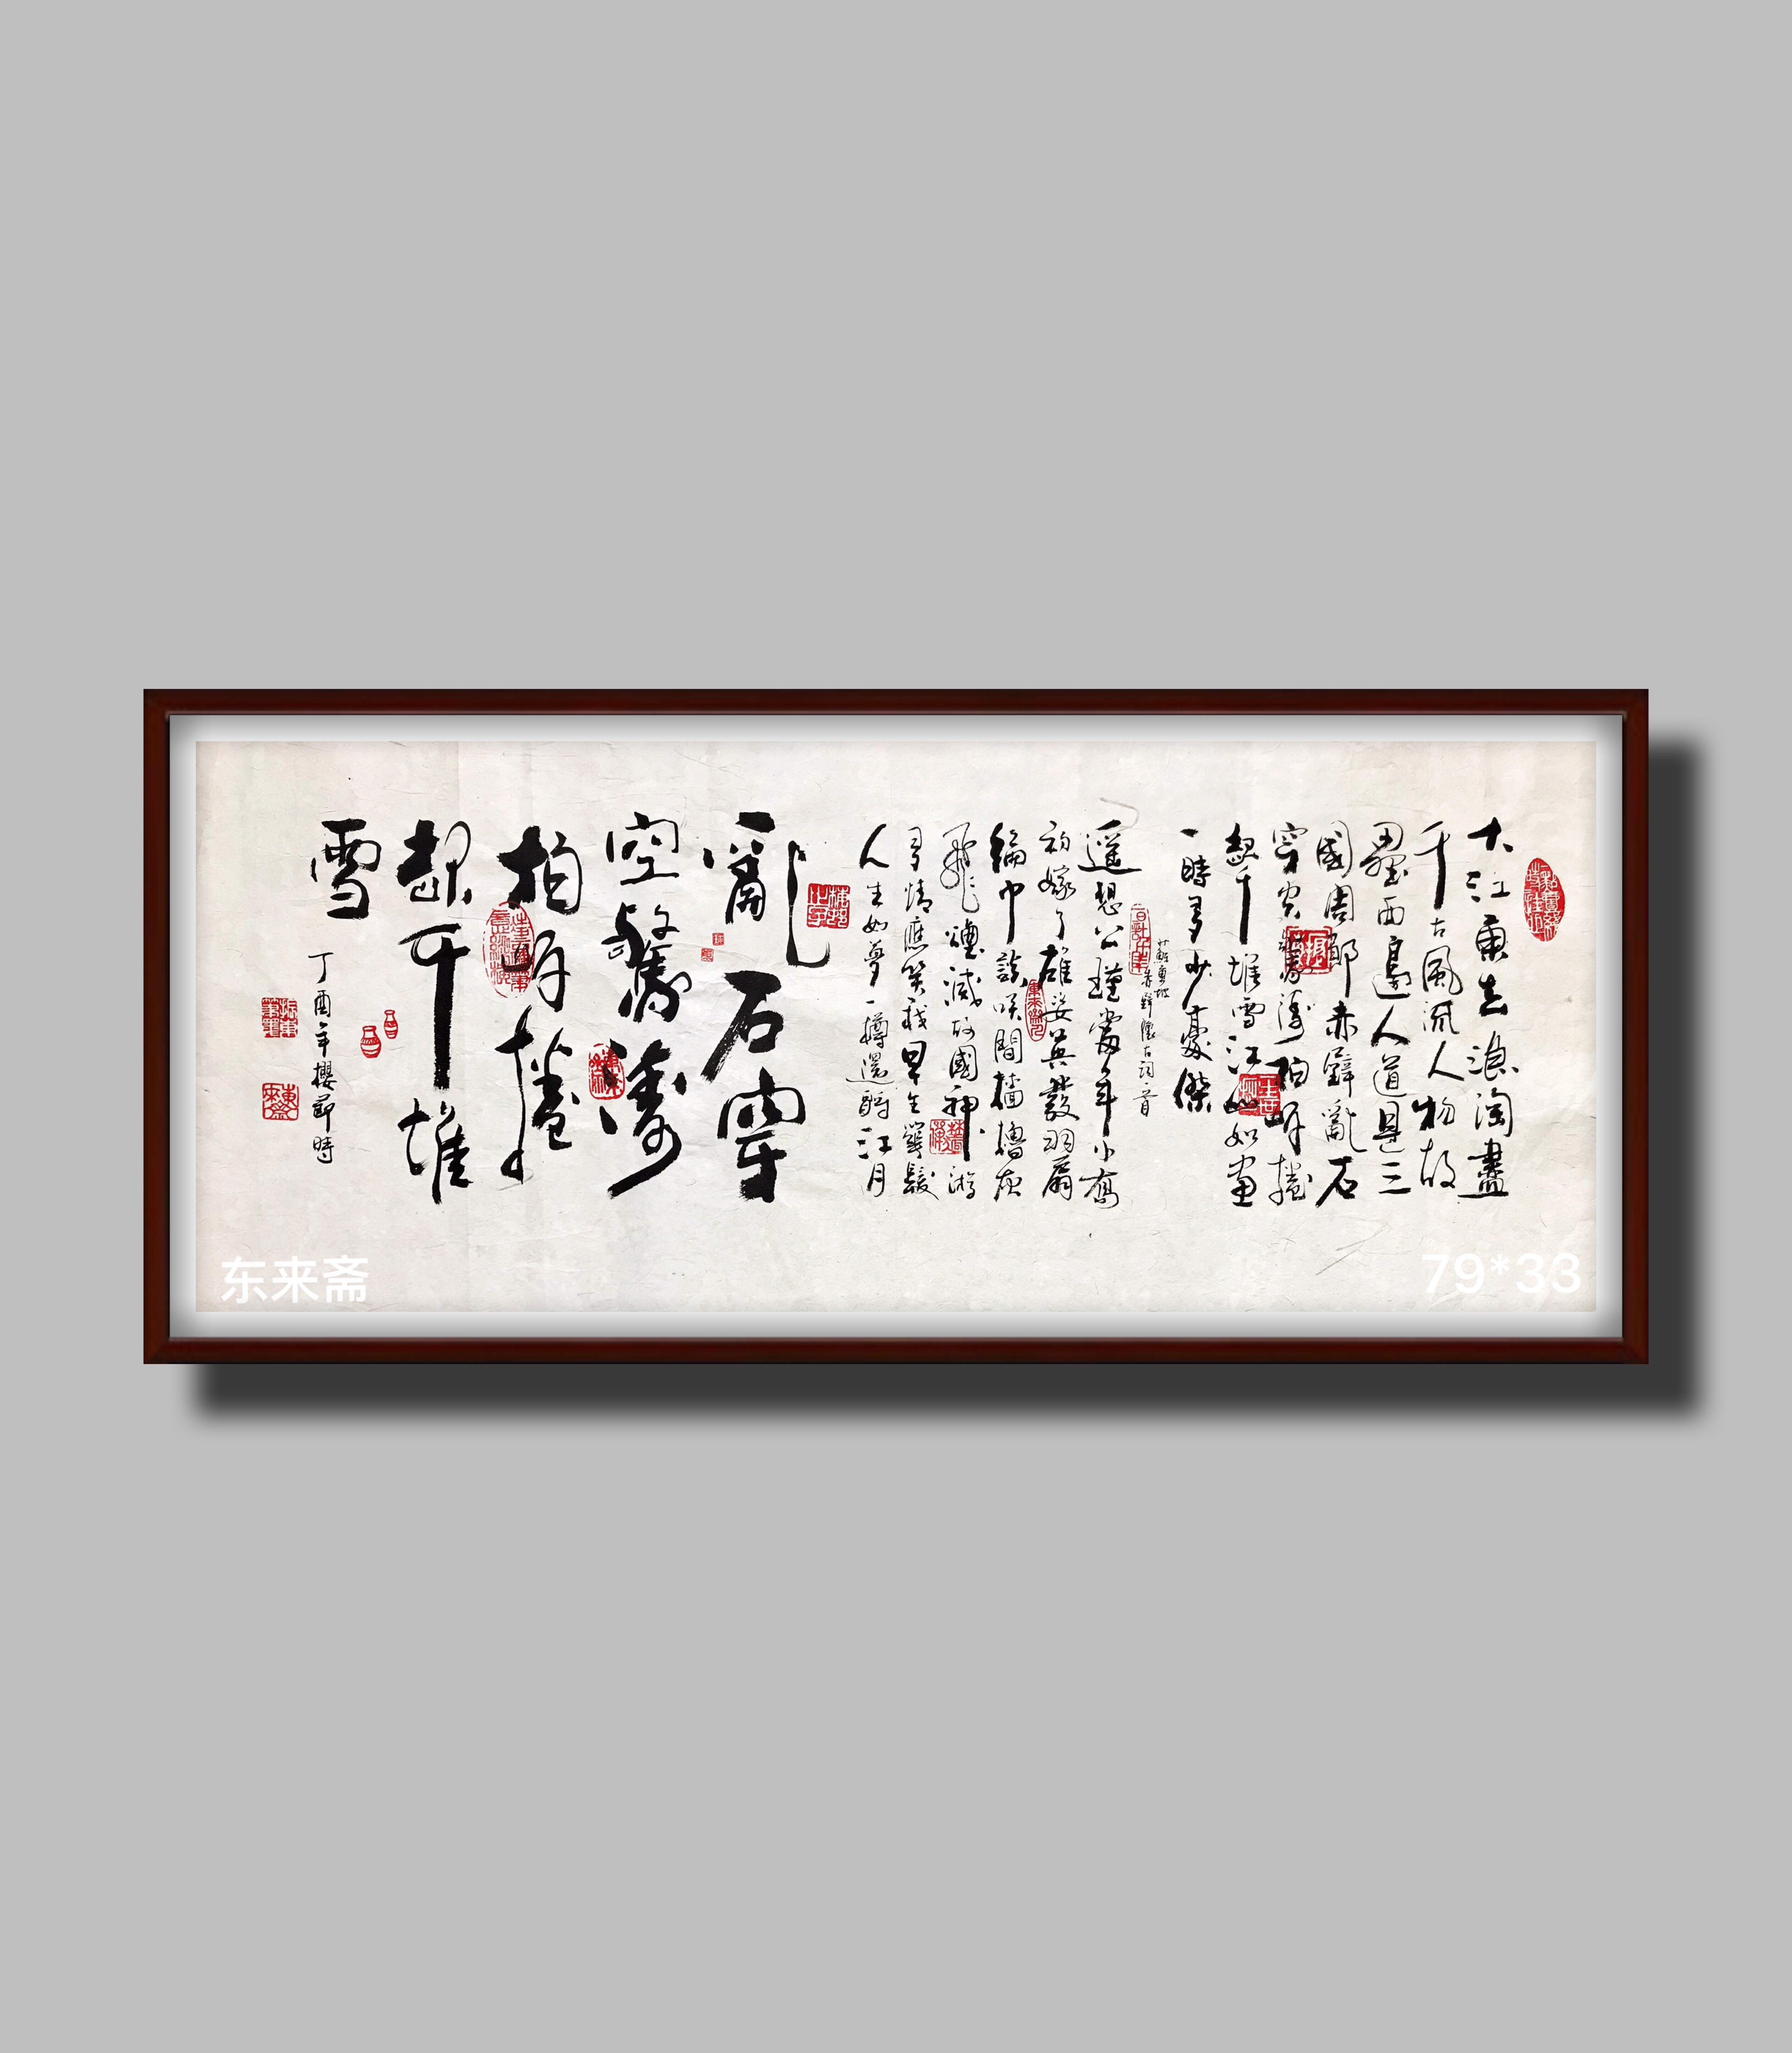 大江東去浪淘盡
千古風流人物故
壘西邊人道是三
國周郎赤壁亂石
穿空驚濤拍岸捲
起千堆雪江山如畫
一時多少豪傑
蘇東坡
赤壁懷古詞一首
遥想公瑾當年小喬
初嫁了雄姿英發羽扇
綸巾談笑間檣櫓灰
飛煙滅故國神游
多情應笑我早生華髮
人生如夢一樽還酹江月
亂石穿
空驚濤
拍岸捲
起千堆
雪
丁酉年櫻節時
东来斋
79*33